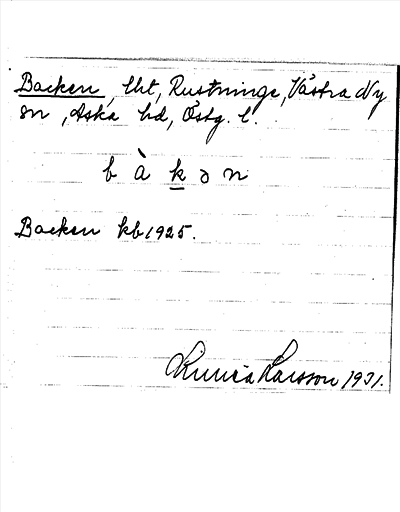 Backen, lht, Rustninge, Västra Ny
sn, Aska hd, Östg. l.
b à k ə n
Backen kb 1925.
Larsson 1931.